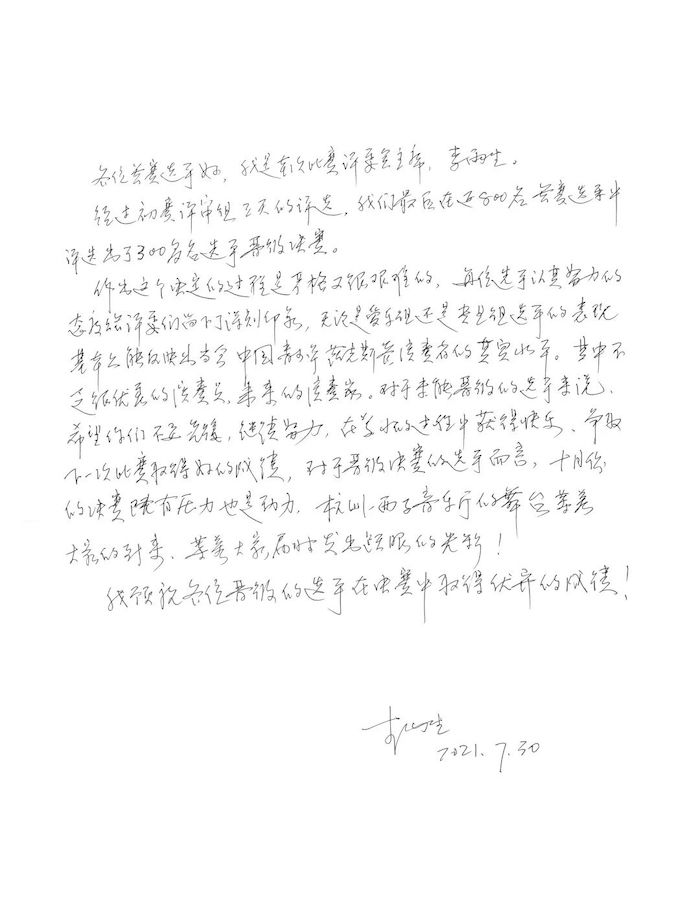 各位参赛选手好，我是本次比赛评委会主席，李雨生。
经过初赛评审组三天的评选，我们最后在近800名参赛选手中
评选出了300多名选手晋级决赛。
作出这个决定的过程是严格又很艰难的，每位选手认真努力的
态度给评委们留下了深刻印象，无论是爱乐组还是专业组选手的表现
基本上能反映出当今中国青少年萨克斯管演奏者的真实水平。其中不
乏很优秀的演奏员、未来的演奏家。对于未能晋级的选手来说，
希望你们不要气馁，继续努力，在学习的过程中获得快乐、争取
下一次比赛取得好的成绩，对于晋级决赛的选手而言，十月份
的决赛既有压力也是动力，杭州-西子音乐厅的舞台等着
大家的到来、等着大家届时发出耀眼的光彩！
我预祝各位晋级的选手在决赛中取得优异的成绩！
李雨生
2021.7.30